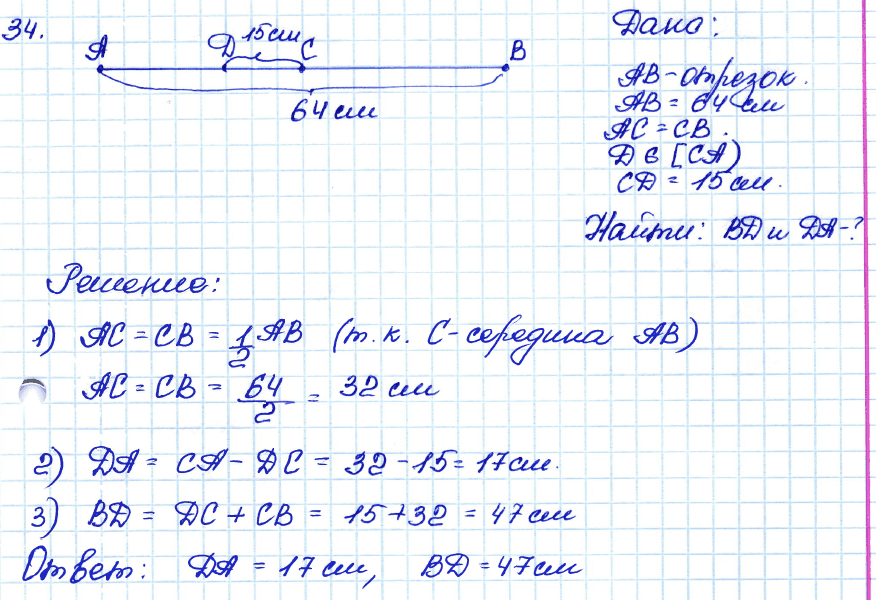 34.
A D 15 см C B
64 см
Дано:
AB - отрезок.
AB = 64 см
AC = CB.
D ∈ [CA)
CD = 15 см.
Найти: BD и DA - ?
Решение:
1) AC = CB = 1/2 AB (т.к. C - середина AB)
AC = CB = 64/2 = 32 см
2) DA = CA - DC = 32 - 15 = 17 см.
3) BD = DC + CB = 15 + 32 = 47 см
Ответ: DA = 17 см, BD = 47 см